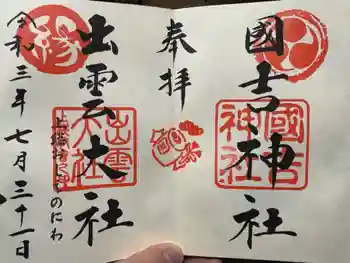 國吉神社
國吉神社
奉拝
出雲大社
出雲大社
上総神こものにわ
縁
令和三年七月三十一日